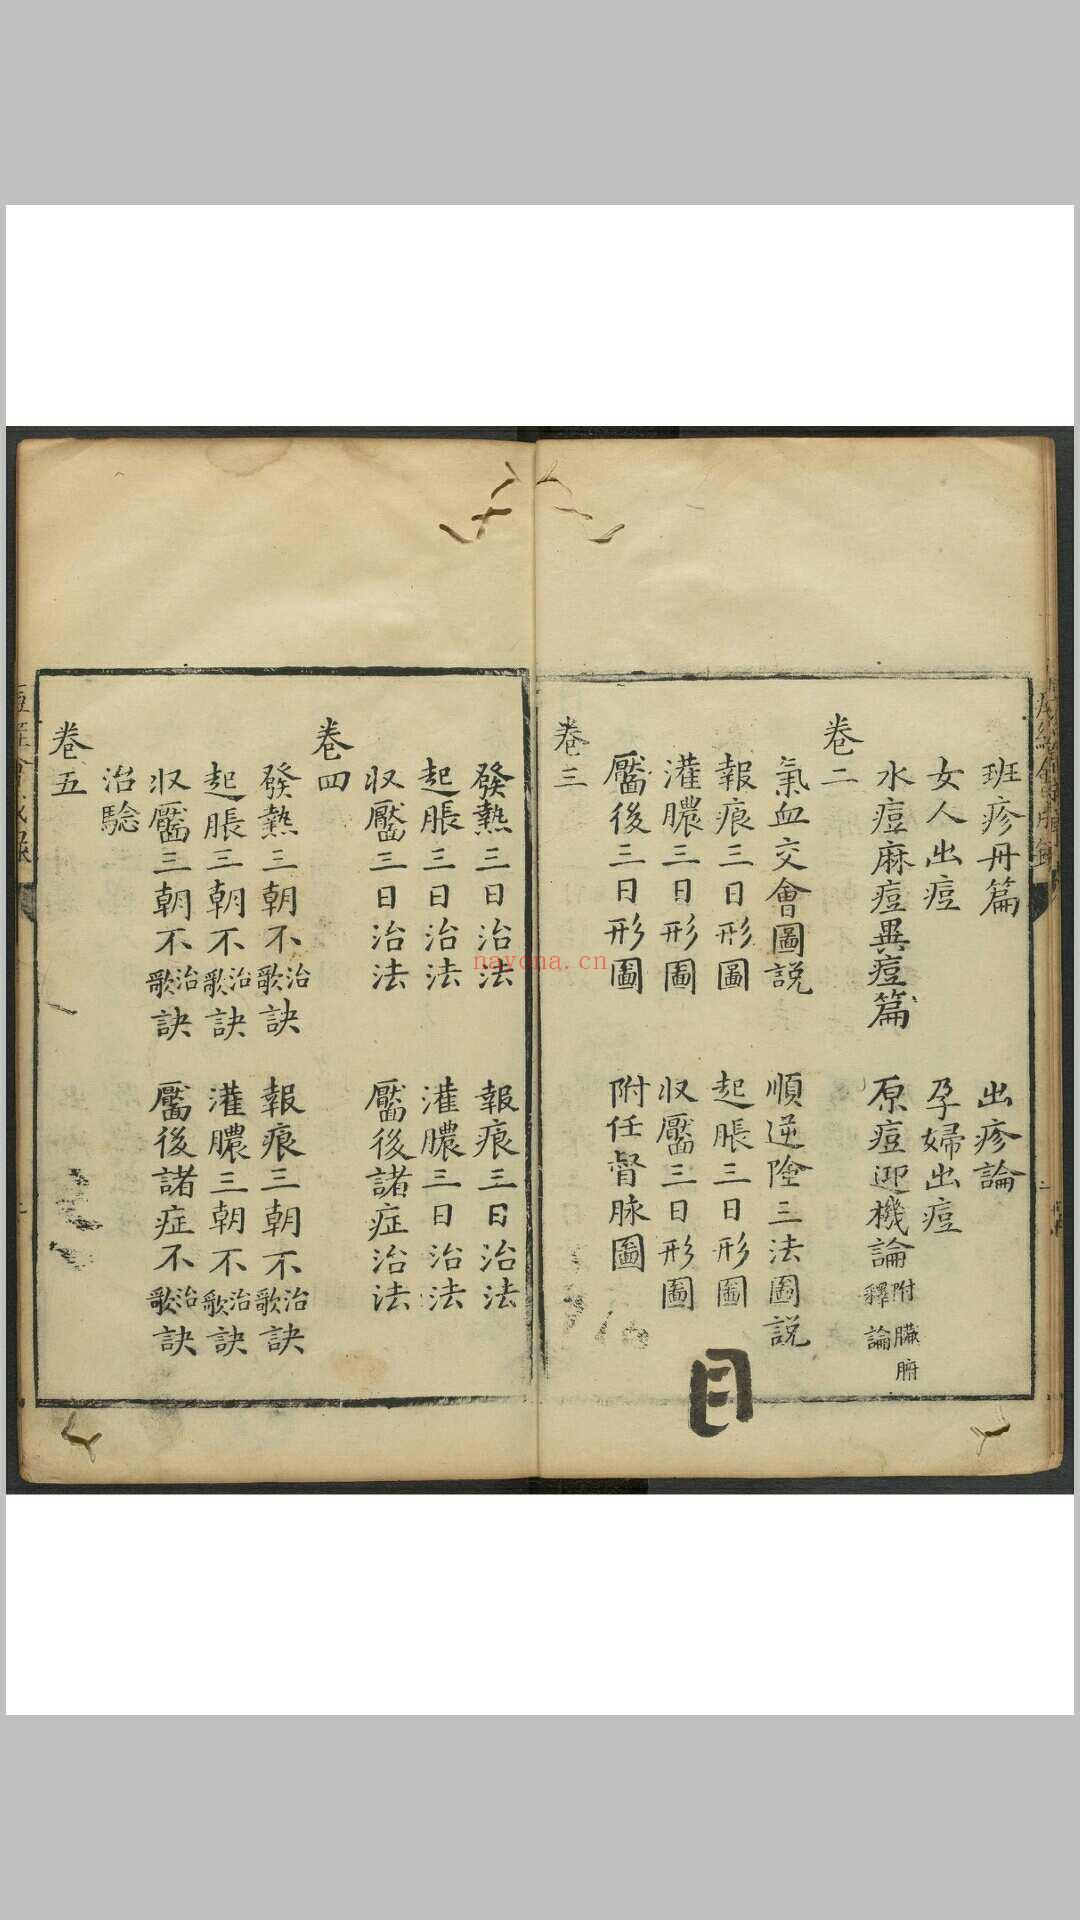 班疹丹篇　出疹論
女人出痘　孕婦出痘
水痘麻痘異痘篇　原痘迎機論附臟腑釋論
卷二
氣血交會圖說　順逆險三法圖説
報痕三日形圖　起脹三日形圖
灌膿三日形圖　収靨三日形圖
靨後三日形圖　附任督脉圖
卷三
發熱三日治法　報痕三日治法
起脹三日治法　灌膿三日治法
収靨三日治法　靨後諸症治法
卷四
發熱三朝不治歌訣　報痕三朝不治歌訣
起脹三朝不治歌訣　灌膿三朝不治歌訣
収靨三朝不治歌訣　靨後諸症不治歌訣
治驗
卷五
目
nayona.cn